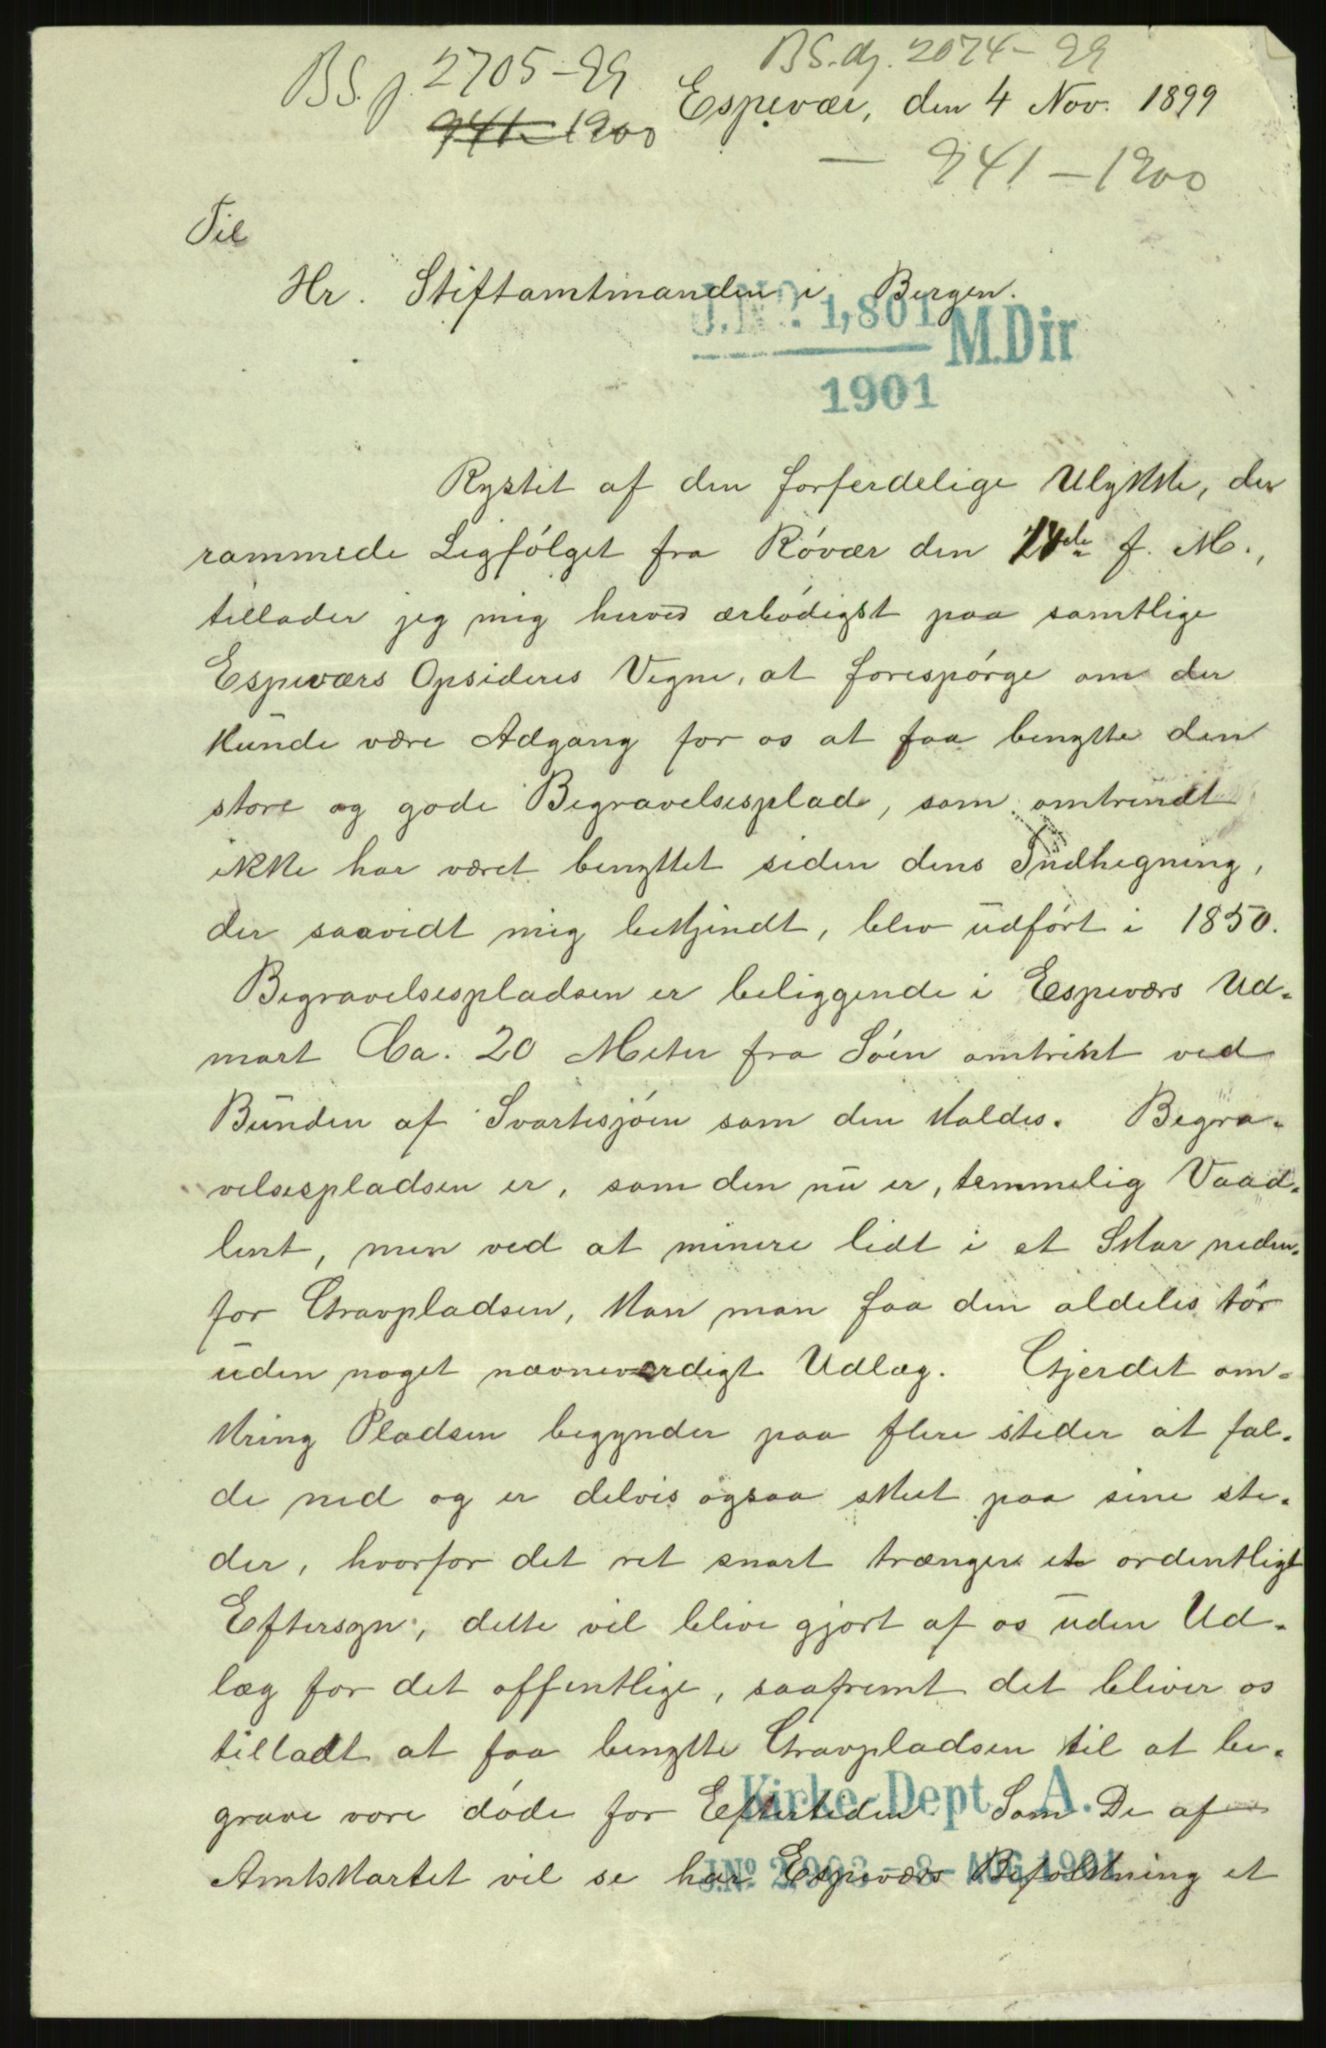 BS.dj. 2074-99
BS.j. 2705-99
Espevær, den 4 Nov. 1899
941-1900
— 941-1900
Til
Hr. Stiftamtmanden i Bergen.
J.No. 1,801 M.Dir
1901
Rystet af den forferdelige Ulykke, der
rammede Ligfølget fra Røvær den de f. M.,
tillader jeg mig herved ærbødigst paa samtlige
Espeværs Opsideres Vegne, at forespørge om der
kunde være Adgang for os at faa benytte den
store og gode Begravelsesplads, som omtrendt
ikke har været benyttet siden dens Indhegning,
der saavidt mig bekjendt, blev udført i 1850.
Begravelsespladsen er beliggende i Espeværs Ud-
mark Ca. 20 Meter fra Søen omtrent ved
Bunden af Svartesjøen som den kaldes. Begra-
velsespladsen er, som den nu er, temmelig Vaad-
lent, men ved at minere lidt i et Skar neden-
for Gravpladsen, kan man faa den aldeles tør
uden noget nævneværdigt Udlæg. Gjerdet om-
kring Pladsen begynder paa flere steder at fal-
de ned og er delvis ogsaa skeet paa sine ste-
der, hvorfor det ret snart trænger et ordentligt
Eftersyn, dette vil blive gjort af os uden Ud-
læg for det offentlige, saafremt det bliver os
tilladt at faa benytte Gravpladsen til at be-
grave vore døde for Eftertiden Som De af
Kirke-Dept. A.
Amtskartet vil se har Espeværs Befolkning et
J.No. 2,903 - 8-AUG 1901